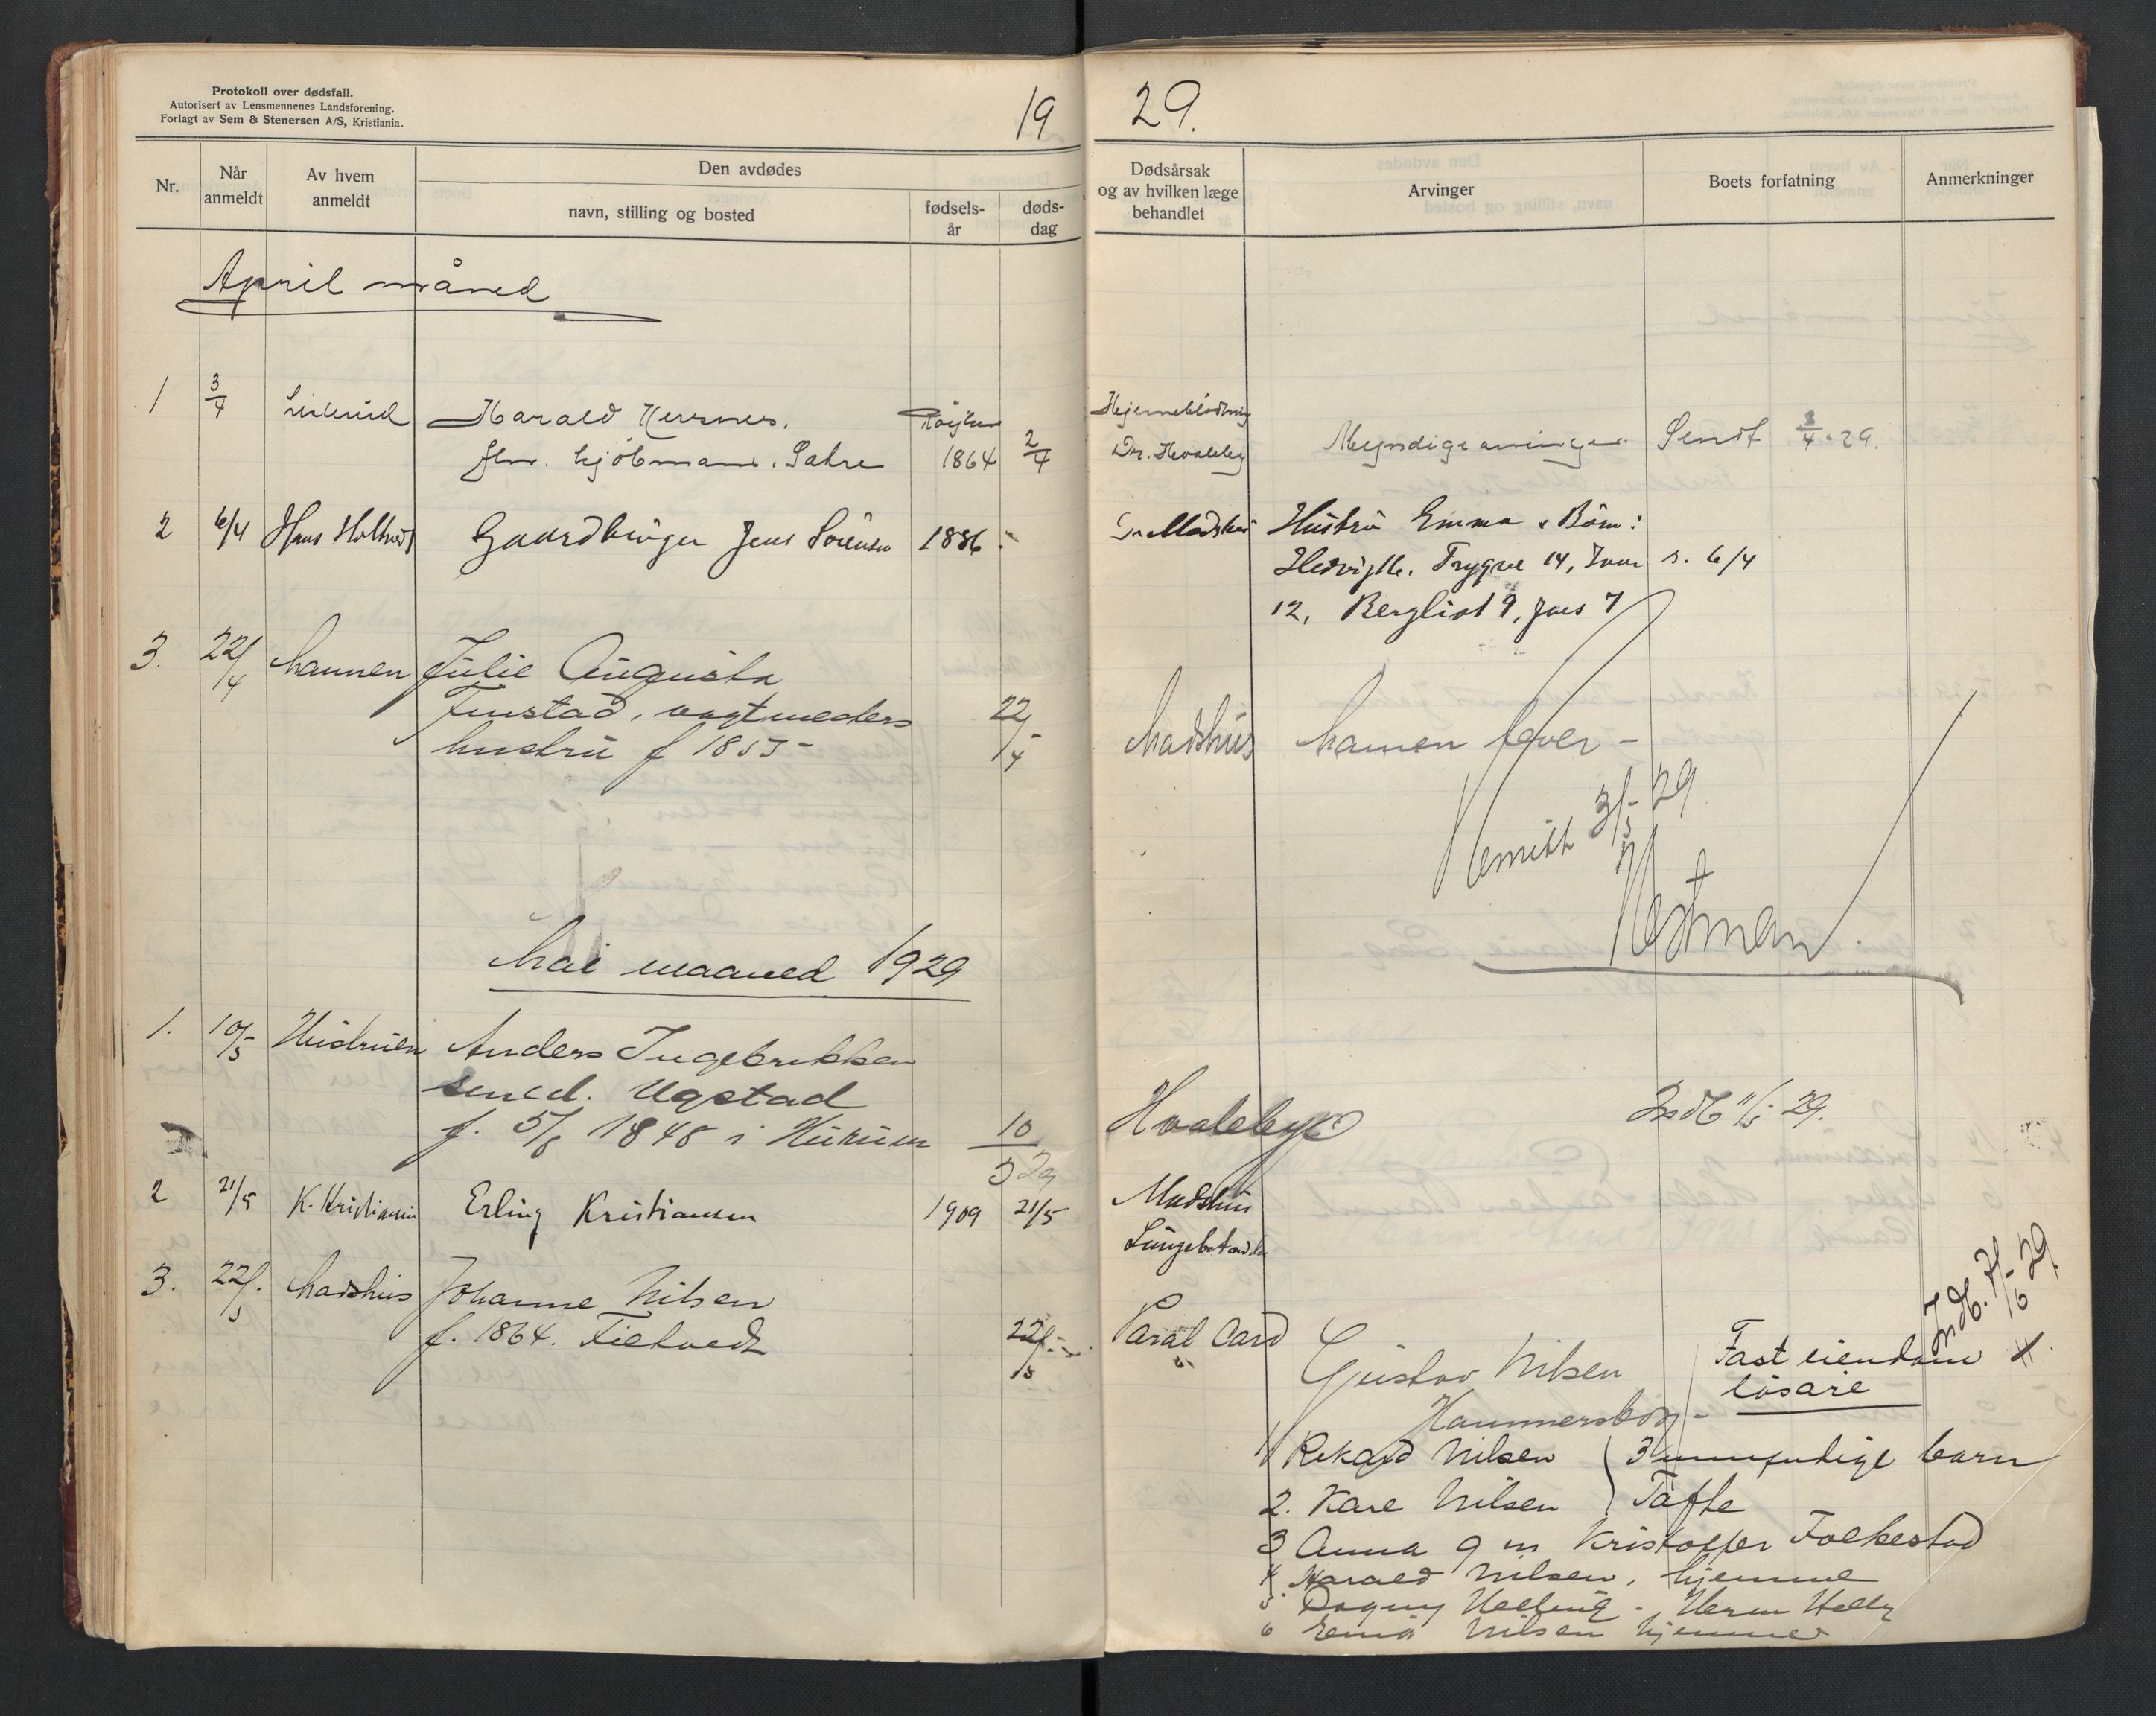 Protokoll over dødsfall.
Autorisert av Lensmennenes Landsforening.
Forlagt av Sem & Stenersen A/S, Kristiania.
19
29.
Nr.
Når anmeldt
Av hvem anmeldt
Den avdødes
navn, stilling og bosted
fødsels-år
døds-dag
Dødsårsak og av hvilken læge behandlet
Arvinger
Boets forfatning
Anmerkninger
April måned
1 3/4 Harald
fhv. kjøbmann. Sætre 1864 2/4
Hjerneblødning
Dr. Hvaleby
Myndige arvinger. Sendt 3/4-29.
2 6/4 Hans Gaardbruger Jens Sørensen 1886
Hustru Emma & Børn:
Trygve 14, Ivar s. 6/4
12, Bergliot 9, Jens 7
3. 22/4 Mannen Julie Augusta
Finstad, vagtmesters
hustru f 1853- 22/4
Madshus Mannen lever -
3/5-29
Mai maaned 1929
1. 10/5 Hustruen Anders Ingebriktsen
Ugstad
f. 5/8 1848 i Hurum 10/5 29
Hvaleby Indb 11/5 29.
2 21/5 K. Kristiansen Erling Kristiansen 1909 21/5
Madshus
3. 22/5 Madshus Johanne Nilsen
f. 1864. 22/5
Indb. 7/6-29
Gustav Nilsen Fast eiendom
løsøre
Hammersborg-
1 Rikard Nilsen 3 umyndige barn
2. Kare Nilsen Tofte
3 Anna g m Kristoffer Folkestad
4 Harald Nilsen, hjemme
5 Dagny
6 Nilsen hjemme